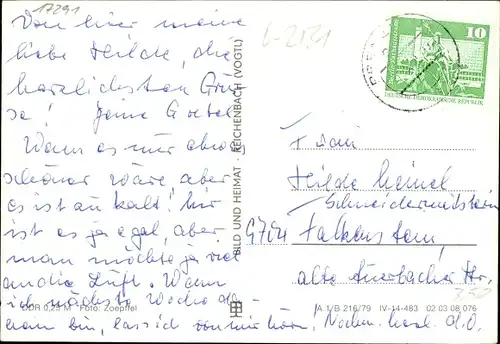 17291
Von hier meine
liebe Hilde, die
herzlichsten Grüs-
se! Deine Grete.
Wenn es nur etwas
schöner wäre, aber
es ist zu kalt! Mir
ist es ja egal, aber
man möchte ja viel
an die Luft. Wenn
ich nächste Woche da-
heim bin, lass ich von mir hören, Nochm. herzl. d. O.
L-2131
10
DEUTSCHE DEMOKRATISCHE REPUBLIK
Frau
Hilde Heinel
Schneidermeisterin
9704 Falkenstein,
alte Auerbacher Str.
BILD UND HEIMAT REICHENBACH (VOGTL)
DDR 0,25 M Foto: Zoepffel
A 1/B 216/79 IV-14-483 02 03 08 076